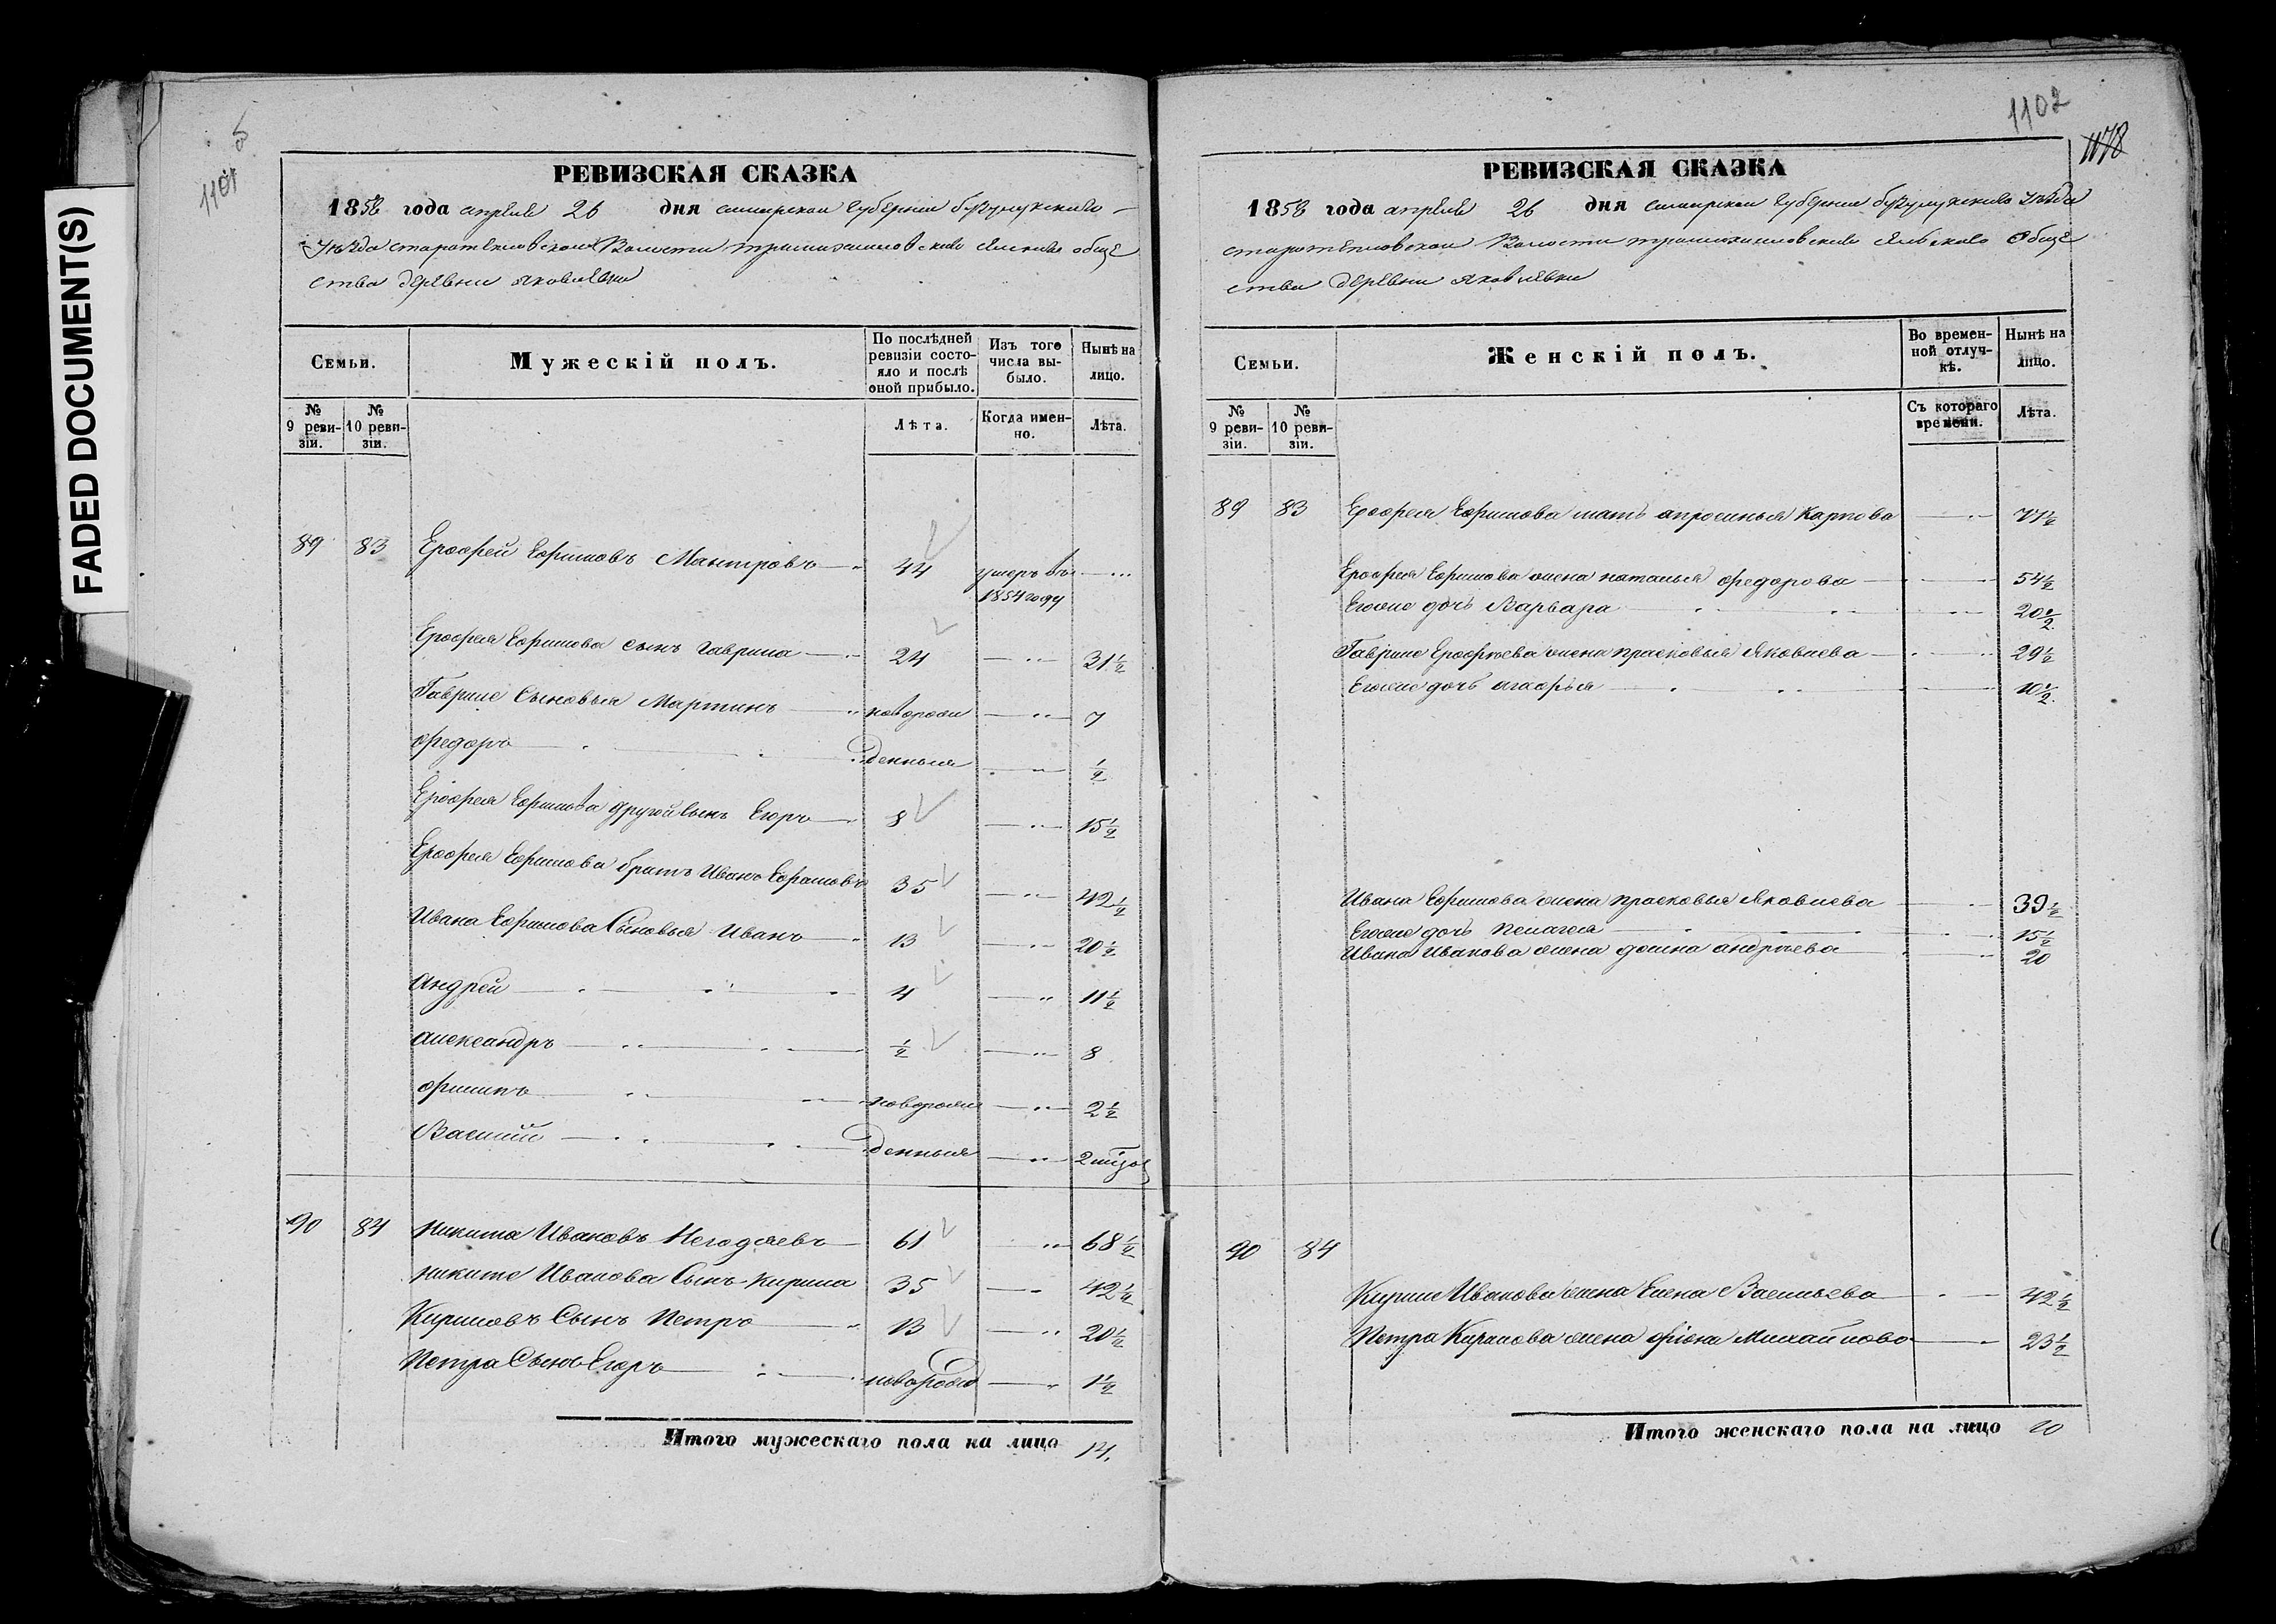 FADED DOCUMENT(S)
1101
РЕВИЗСКАЯ СКАЗКА
1858 года апреля 26 дня самарской губернии бузулукскаго
Уезда старотепловской Волости общe
ства деревни яковлевки
Семьи.
Мужескій полъ.
По послѣдней ревизіи состояло и послѣ оной прибыло.
Изъ того числа выбыло.
Нынѣ на лицо.
№ 9 ревизіи.
№ 10 ревизіи.
Лѣта.
Когда именно.
Лѣта.
89 83 Ерофей Ефимовъ 44 умеръ въ
1854 году
Ерофея Ефимова сынъ гаврила 24 31 ½
Гаврилы Сыновья Мартинъ новорож 7
федоръ денныя ½
Ерофея Ефимова другой сынъ Егоръ 8 15 ½
Ерофея Ефимова братъ Иванъ Ефимовъ 35 42 ½
Ивана Ефимова Сыновья Иванъ 13 20 ½
андрей 4 11 ½
александръ ½ 8
филипъ новорож 2 ½
Василий денныя 2
90 84 никита Ивановъ Негодяевъ 61 68 ½
никите Иванова Сынъ кирила 35 42 ½
Кириловъ Сынъ Петръ 13 20 ½
Петра Сынъ Егоръ новорож 1 ½
Итого мужескаго пола на лицо 14.
1102
1178
РЕВИЗСКАЯ СКАЗКА
1858 года апреля 26 дня самарской губернии бузулукскаго Уезда
старотепловской Волости обще
ства деревни яковлевки
Семьи.
Женскій полъ.
Во временной отлучкѣ.
Нынѣ на лицо.
№ 9 ревизіи.
№ 10 ревизіи.
Съ котораго времени.
Лѣта.
89 83 Ерофея Ефимова мать апросинья Карпова 77 ½
Ерофея Ефимова жена наталья федорова 54 ½
Егоже дочь Варвара 20 ½
Гаврилы Ерофеева жена прасковья Яковлева 29 ½
Егоже дочь агафья 10 ½
Ивана Ефимова жена прасковья Яковлева 39 ½
Егоже дочь Пелагея 15 ½
Ивана Иванова жена домна андреева 20
90 84
Кирилы Иванова жена Елена Васильева 42 ½
Петра Кирилова жена фіона Михайлова 23 ½
Итого женскаго пола на лицо 10